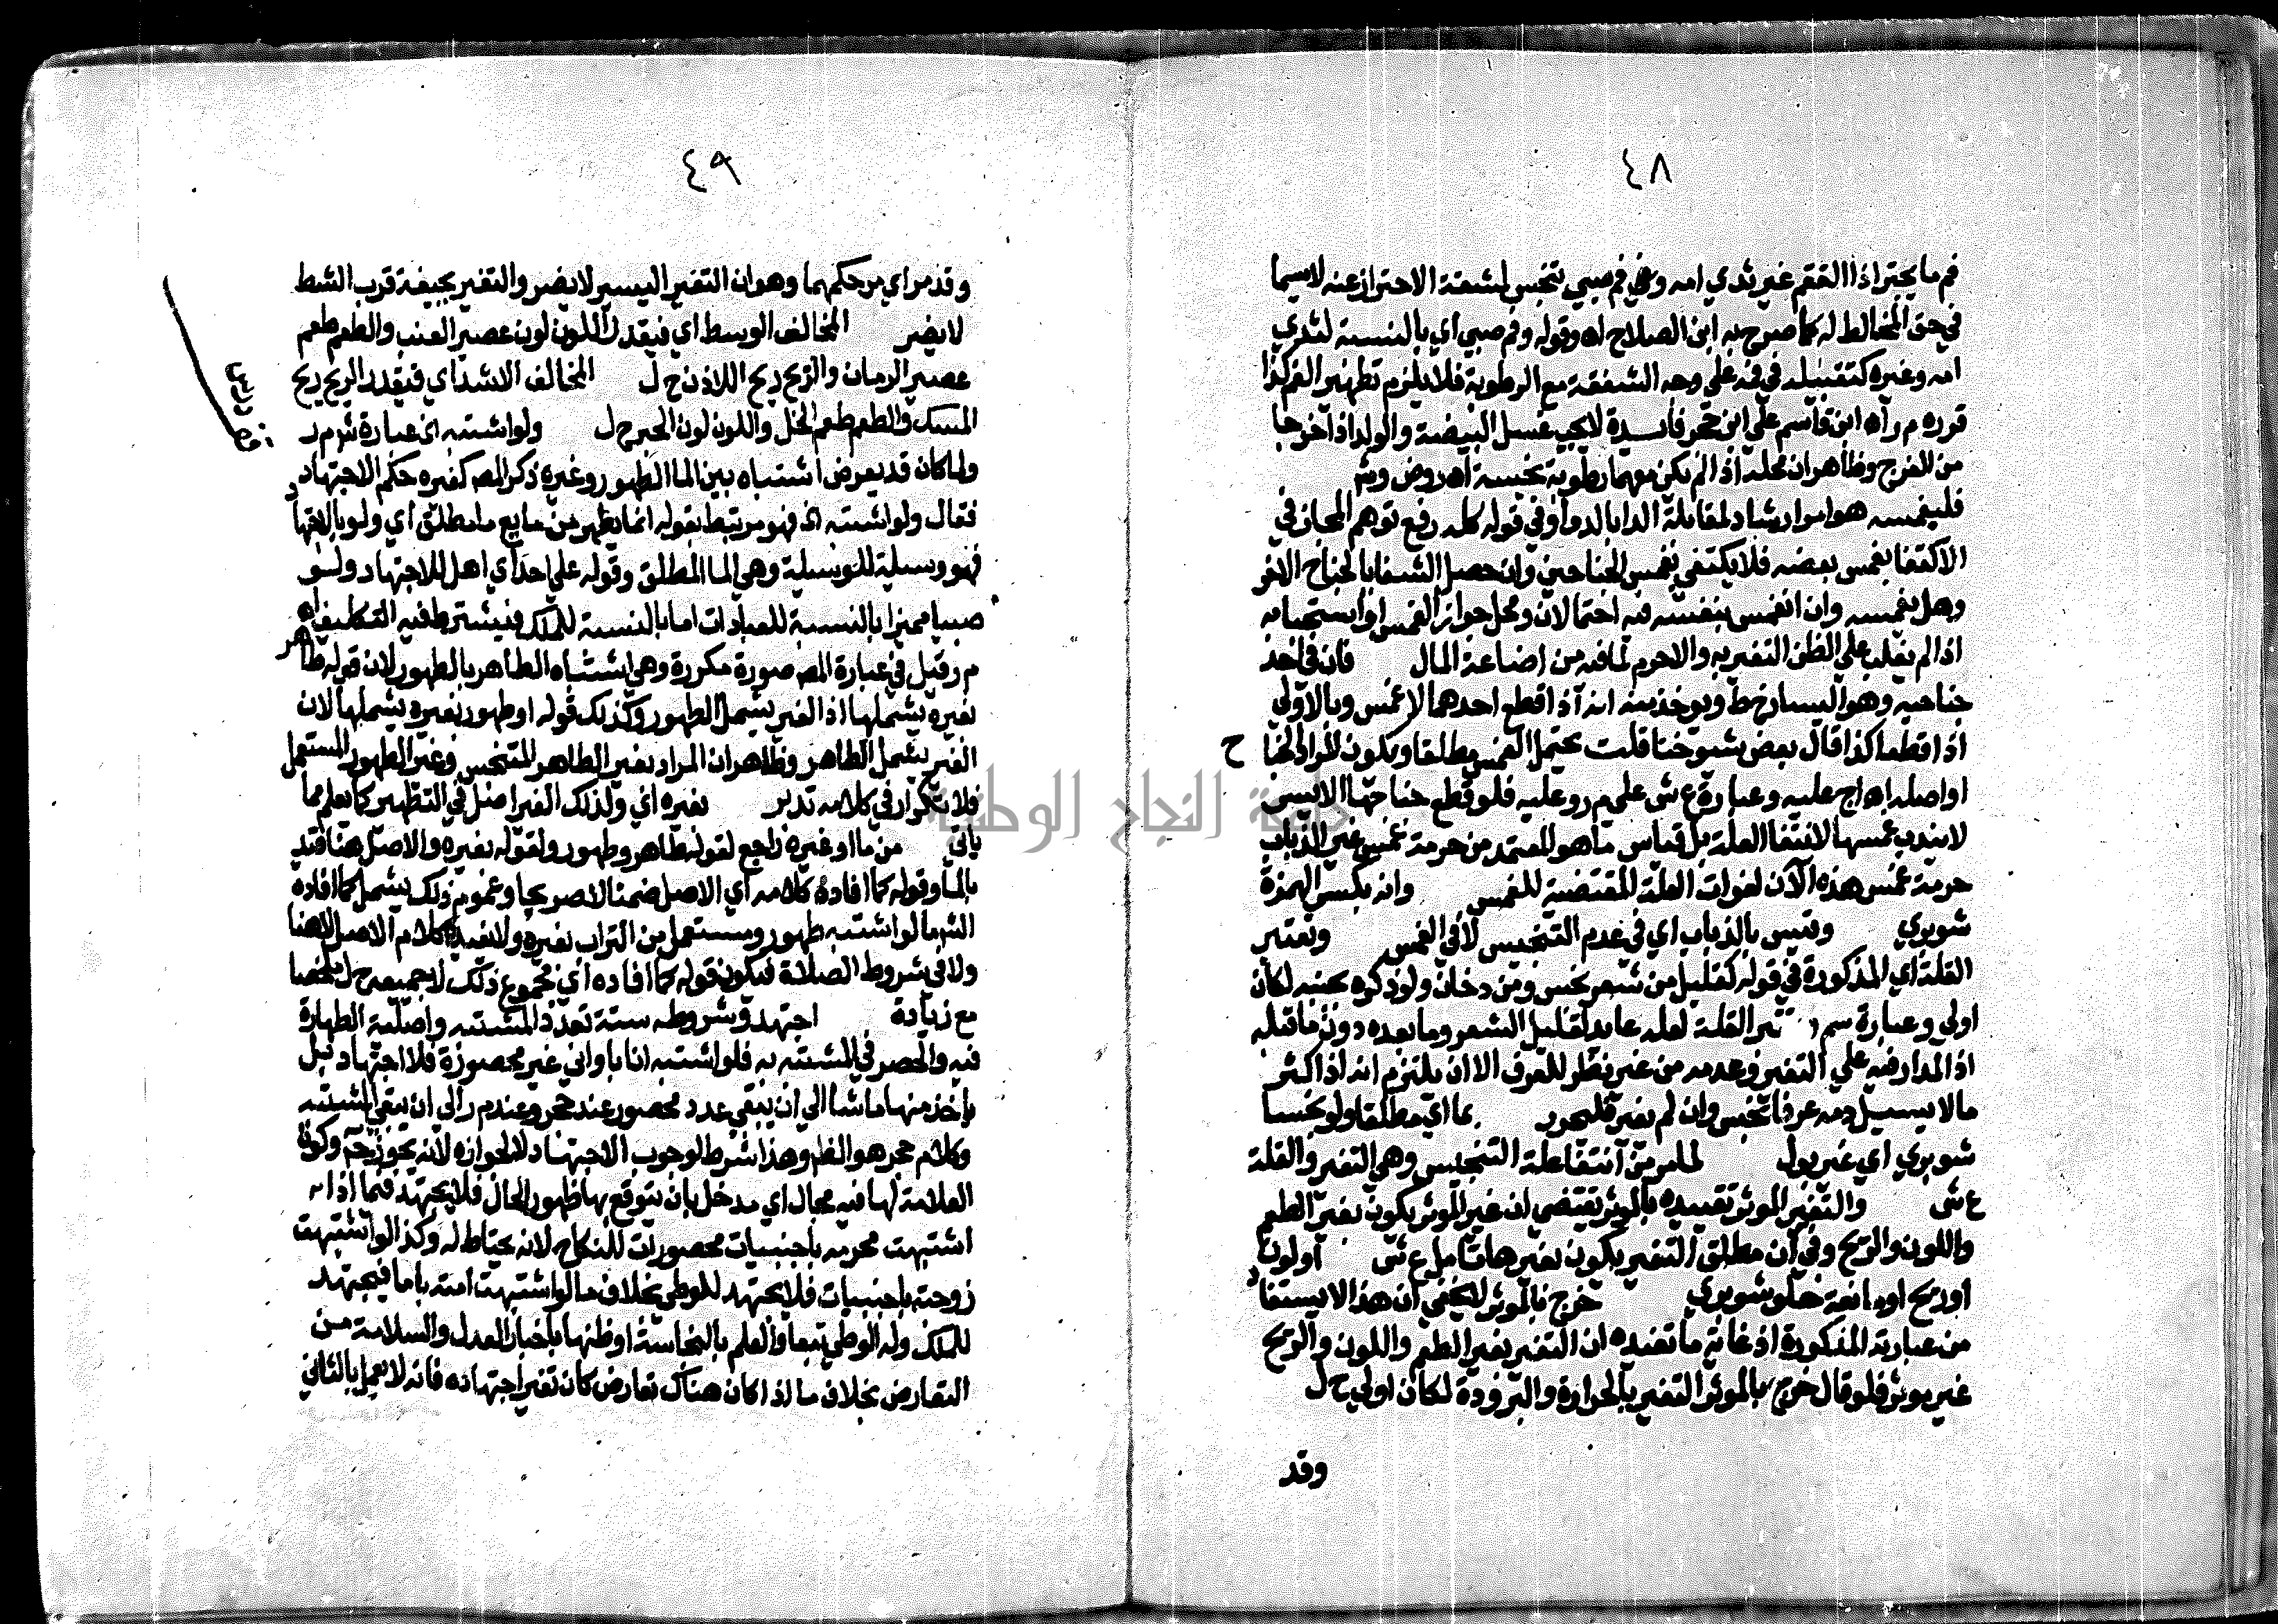 ٤٨
فم ما يجتر اذا التقم غير ثدي امه وفي فم صبي تنجس لمشقة الاحتراز عنه لاسيما
في حق المخالط له كما صرح به ابن الصلاح اه وقوله وفم صبي اي بالنسبة لثدي
امه وغيره كتقبيله في فمه علي وجه الشفقة مع الرطوبة فلا يلزم تطهير الفم كذا
قرره م ر اه ابن قاسم علي ابن حجر فايدة لا يجب غسل البيضة والولد اذا خرجا
من الفرج وظاهر ان محله اذا لم يكن معهما رطوبة نجسة اه روض وشر
فليغمسه هو امر ارشاد لمقابلة الدا بالدوا وفي قوله كله رفع توهم المجاز في
الاكتفا بغمس بعضه فلا يكتفي بغمس الجناحين وان حصل الشفا بالجناح الاخر
وهل يغمسه وان انغمس بنفسه فيه احتمالان ومحل جواز الغمس او استحبابه
اذا لم يغلب علي الظن التغير به والا حرم لما فيه من اضاعة المال فان في احد
جناحيه وهو اليسار خ ط ويوخذ منه انه اذا قطع احدهما لا غمس وبالاولي
اذا قطعا كذا قال بعض شيوخنا قلت يحتمل الغمس مطلقا ويكون للدا الخفا
ح
او اصله اه اج عليه وعبارة ع ش علي م ر وعليه فلو قطع جناحها الايسر
لا يندب غمسها لانتفا العلة بل قياس ما هو المعتمد من حرمة غمس غير الذباب
حرمة غمس هذه الان لفوات العلة المقتضية للغمس وانه بكسر الهمزة
شوبري وقيس بالذباب اي في عدم التنجيس لا في الغمس وتعتبر
القلة اي المذكورة في قوله كقليل من شعر نجس ومن دخان ولو ذكره بجنبه لكان
اولي وعبارة سم القلة لعله عايد لقليل الشعر وما بعده دون ما قبله
اذ المدار فيه علي التغير وعدمه من غير نظر للعرف الا ان يلتزم انه اذا كثر
ما لا يسيل دمه عرفا نجس وان لم يغير فليحرر بما اي مطلقا ولو نجسا
شوبري اي غير بول لما مر من انتفا علة التنجيس وهي التغير والقلة
ع ش والتغير الموثر تقييده بالموثر يقتضي ان غير الموثر يكون بغير الطعم
واللون والريح وفي ان مطلق التغير يكون بغيرها تامل ع ش او لون
او ريح او مانعة خلو شوبري خرج بالموثر لا يخفي ان هذا لا يستفاد
من عبارته المذكورة اذ غاية ما تفيده ان التغير بغير الطعم واللون والريح
غير موثر فلو قال خرج بالموثر التغير بالحرارة والبرودة لكان اولي ح ل
وقد
٤٩
وقد مر اي مر حكمهما وهو ان التغير اليسير لا يضر والتغير بجيفة قرب الشط
لا يضر المخالف الوسط اي فيقدر اللون لون عصير العنب والطعم طعم
عصير الرمان والريح ريح اللاذن ح ل المخالف الاشد اي فيقدر الريح ريح
المسك والطعم طعم الخل واللون لون الحبر ح ل ولو اشتبه الخ عبارة شرح م ر
ولما كان قد يعرض اشتباه بين الما الطهور وغيره ذكر المص كغيره حكم الاجتهاد
فقال ولو اشتبه الخ فهو مرتبط بقوله انما يطهر من مايع ما مطلق اي ولو بالاجتهاد
فهو وسيلة للوسيلة وهي الما المطلق وقوله علي احد اي اهل للاجتهاد ولو
صبيا مميزا بالنسبة للعبادات اما بالنسبة للملك فيشترط فيه التكليف اه
م ر قيل في عبارة المص صورة مكررة وهي اشتباه الطاهر بالطهور لان قوله طاهر
بغيره يشملها اذ الغير يشمل الطهور وكذلك قوله او طهور بغيره يشملها لان
الغير يشمل الطاهر وظاهر ان المراد بغير الطاهر المتنجس وغير الطهور المستعمل
فلا تكرار في كلامه تدبر بغيره اي ولذلك الغير اصل في التطهير كما يعلم مما
ياتي من ما او غيره راجع لقوله طاهر وطهور ولقوله بغيره والاصل هنا قيد
بالما وقوله كما افاده كلامه اي الاصل ضمنا لا صريحا وعموم ذلك يشمل كما افاده
الشر ما لو اشتبه طهور ومستعمل من التراب بغيره ولا يفيده كلام الاصل لا هنا
ولا في شروط الصلاة فيكون قوله كما افاده اي مجموع ذلك لا جميعه ح ل ملخصا
مع زيادة اجتهد وشروطه ستة تعدد المشتبه واصلية الطهارة
فيه والحصر في المشتبه به فلو اشتبه انا باواني غير محصورة فلا اجتهاد بل
ياخذ منها ما شا الي ان يبقي عدد محصور عند حجر وعند م ر الي ان يبقي المشتبه
وكلام حجر هو الظم وهذا شرط لوجوب الاجتهاد لا لجوازه لانه يجوز نعم وكون
العلامة لها فيه مجال اي مدخل بان يتوقع بها ظهور الحال فلا يجتهد فيما اذا
اشتبهت محرمه باجنبيات محصورات للنكاح لانه يحتاط له وكذا لو اشتبهت
زوجته باجنبيات فلا يجتهد للوطي بخلاف ما لو اشتبهت امته باما فيجتهد
للملك وله الوطي تبعا والعلم بالنجاسة او ظنها باخبار العدل والسلامة من
التعارض بخلاف ما اذا كان هناك تعارض كان تغير اجتهاده فانه لا يعمل بالثاني
جامعة النجاح الوطنية